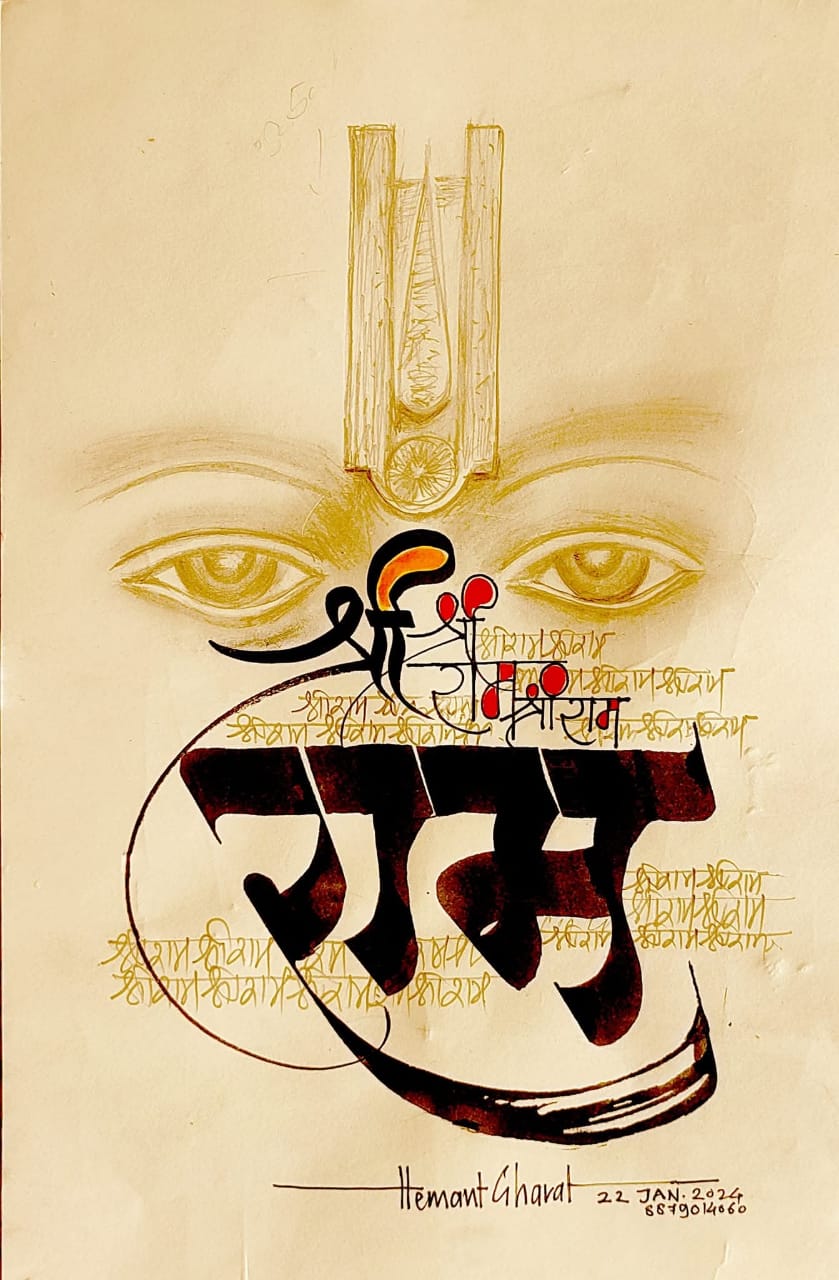 श्री
श्री श्रीराम श्रीराम
राम श्रीराम श्रीराम
श्रीराम श्रीराम
श्रीराम श्रीराम श्रीराम श्रीराम श्रीराम
राम
श्रीराम श्रीराम
श्रीराम श्रीराम
श्रीराम श्रीराम श्रीराम
श्रीराम श्रीराम
श्रीराम श्रीराम श्रीराम श्रीराम
Hemant Gharat 22 JAN. 2024
8879014060